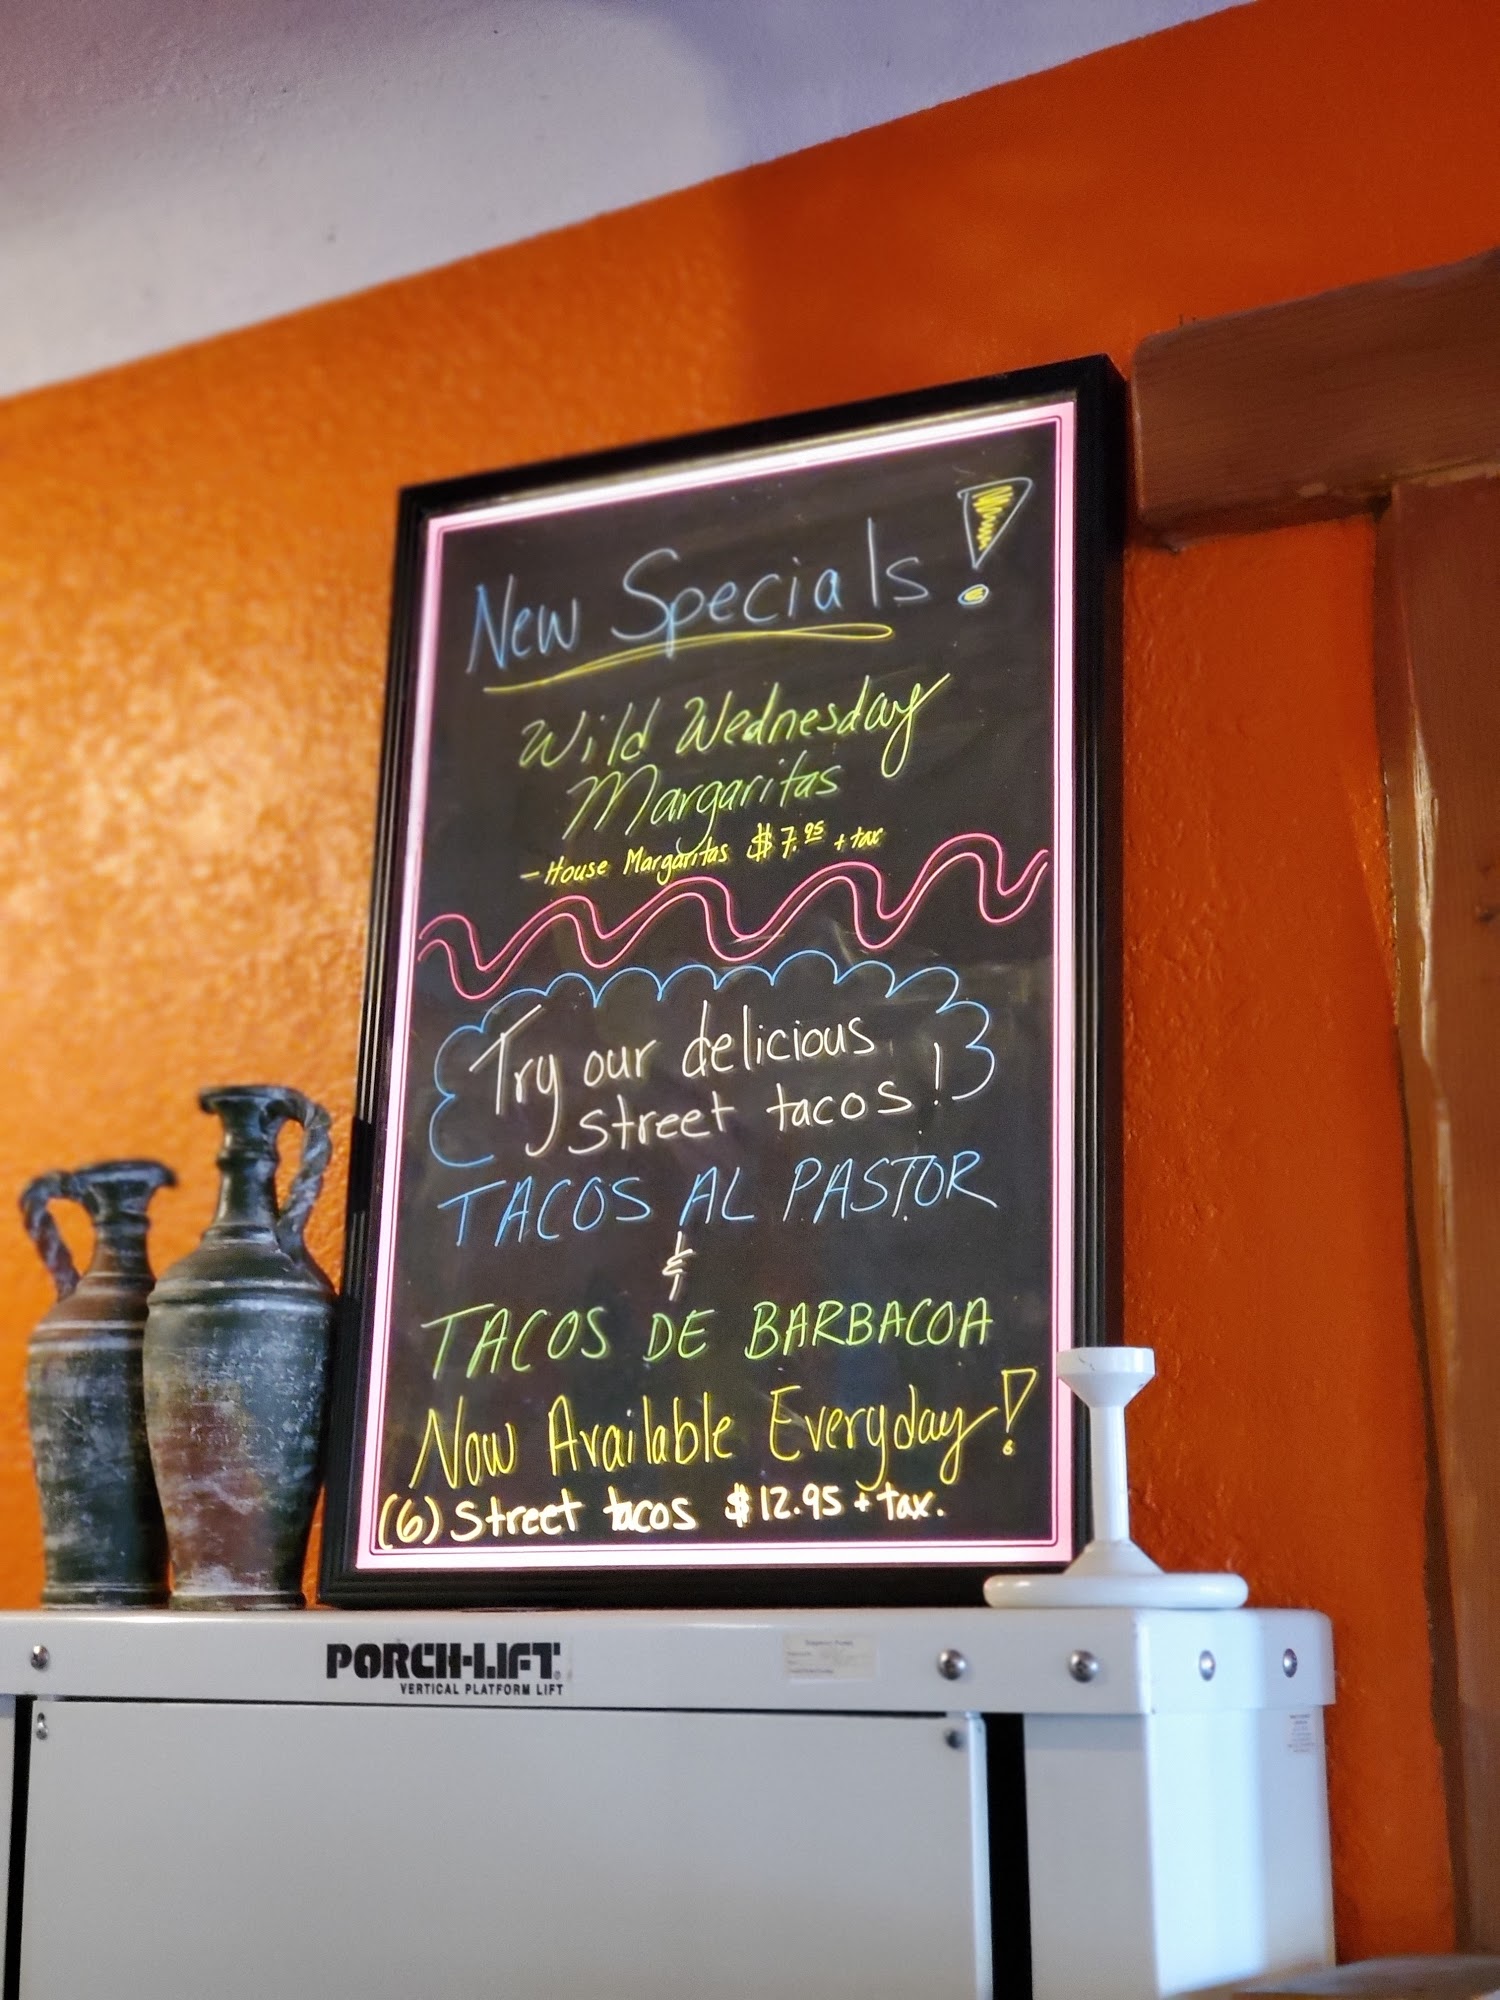 New Specials!
Wild Wednesday
Margaritas
- House Margaritas $7.95 + tax
Try our delicious
street tacos!
TACOS AL PASTOR
&
TACOS DE BARBACOA
Now Available Everyday!
(6) Street tacos $12.95 + tax.
PORCH-LIFT®
VERTICAL PLATFORM LIFT